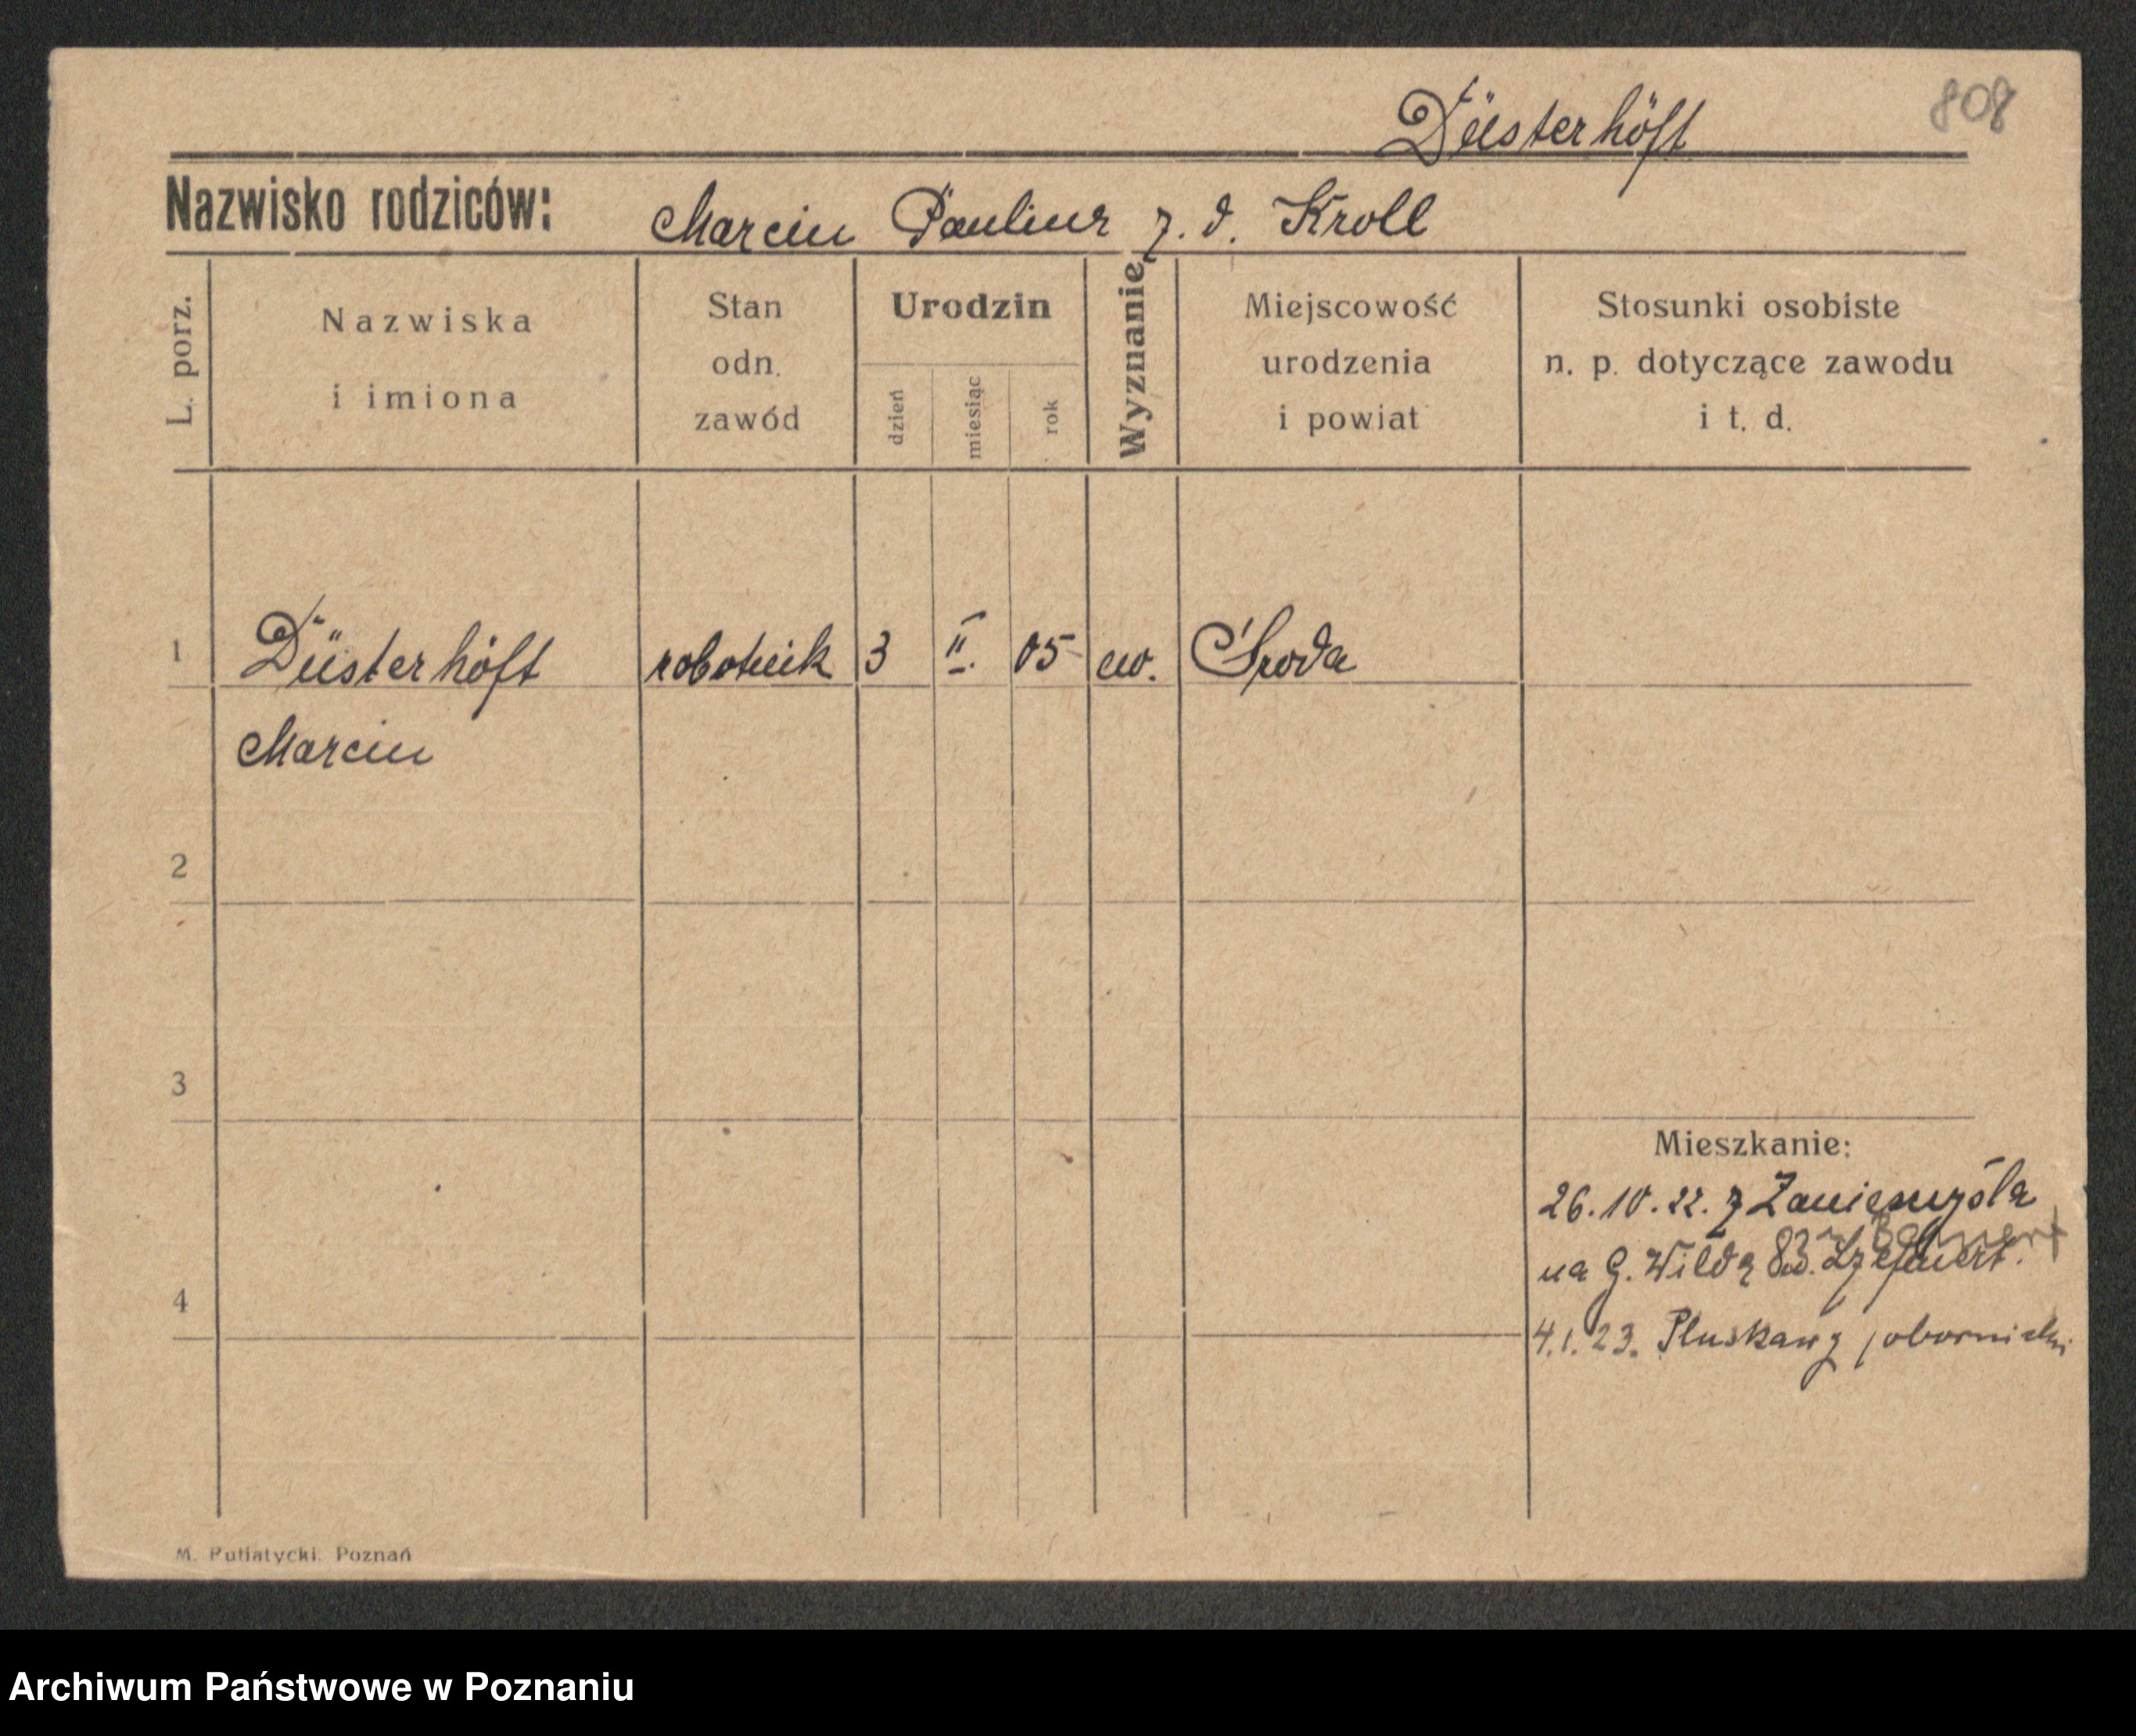 808
Düsterhöft
Nazwisko rodziców: Marcin Paulina z. d. Kroll
L. porz.
Nazwiska i imiona
Stan odn. zawód
Urodzin
dzień
miesiąc
rok
Wyznanie
Miejscowość urodzenia i powiat
Stosunki osobiste n. p. dotyczące zawodu i t. d.
1 Düsterhöft robotnik 3 II. 05 ew. Środa
Marcin
2
3
Mieszkanie:
26.10.22. z Zaniemyśla
na G. Wildę 83.
4
4.1.23. obornicki
M. Putiatycki. Poznań
Archiwum Państwowe w Poznaniu